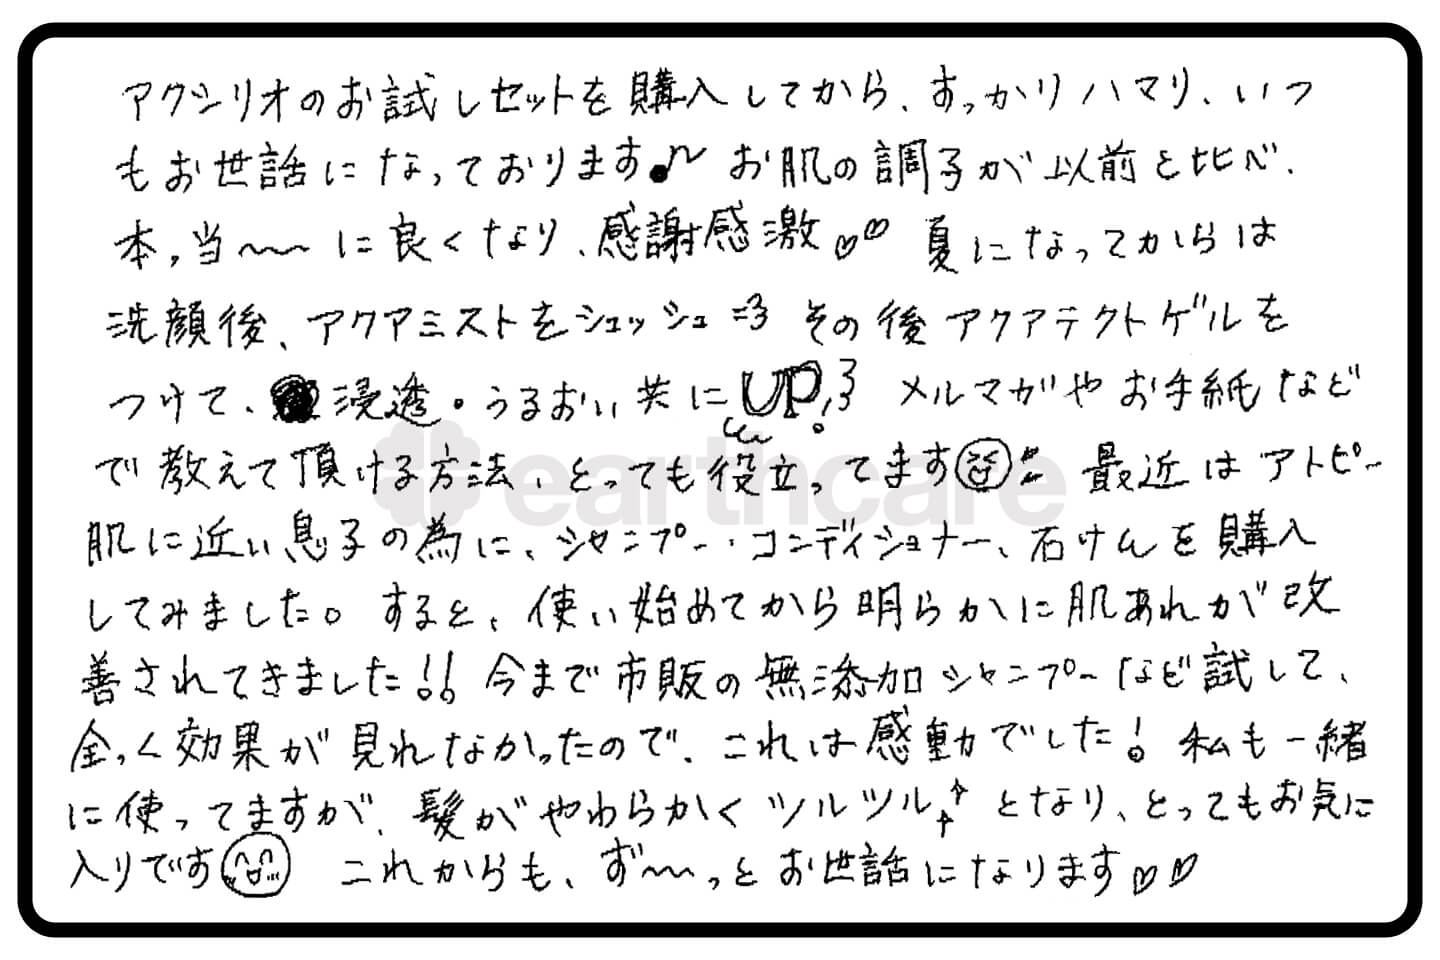 アクシリオのお試しセットを購入してから、すっかりハマリ、いつ
もお世話になっております♪ お肌の調子が以前と比べ、
本っ当〜〜に良くなり、感謝感激♡♡ 夏になってからは
洗顔後、アクアミストをシュッシュ=3 その後アクアテクトゲルを
つけて、浸透。うるおい共にUP!! メルマガやお手紙など
で教えて頂ける方法、とっても役立ってます 最近はアトピー
earthcare
肌に近い息子の為に、シャンプー・コンディショナー、石けんを購入
してみました。すると、使い始めてから明らかに肌あれが改
善されてきました!! 今まで市販の無添加シャンプーなど試して、
全っく効果が見れなかったので、これは感動でした! 私も一緒
に使ってますが、髪がやわらかくツルツルとなり、とってもお気に
入りです これからも、ず〜〜っとお世話になります♡♡